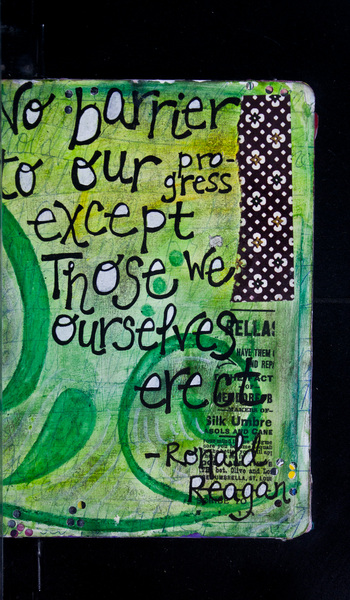 No barrier
to our pro-
gress
except
Those we
ourselves
erect
-Ronald
Reagan
HAVE THEM
AND
Silk Umbre
SOLS AND CANE